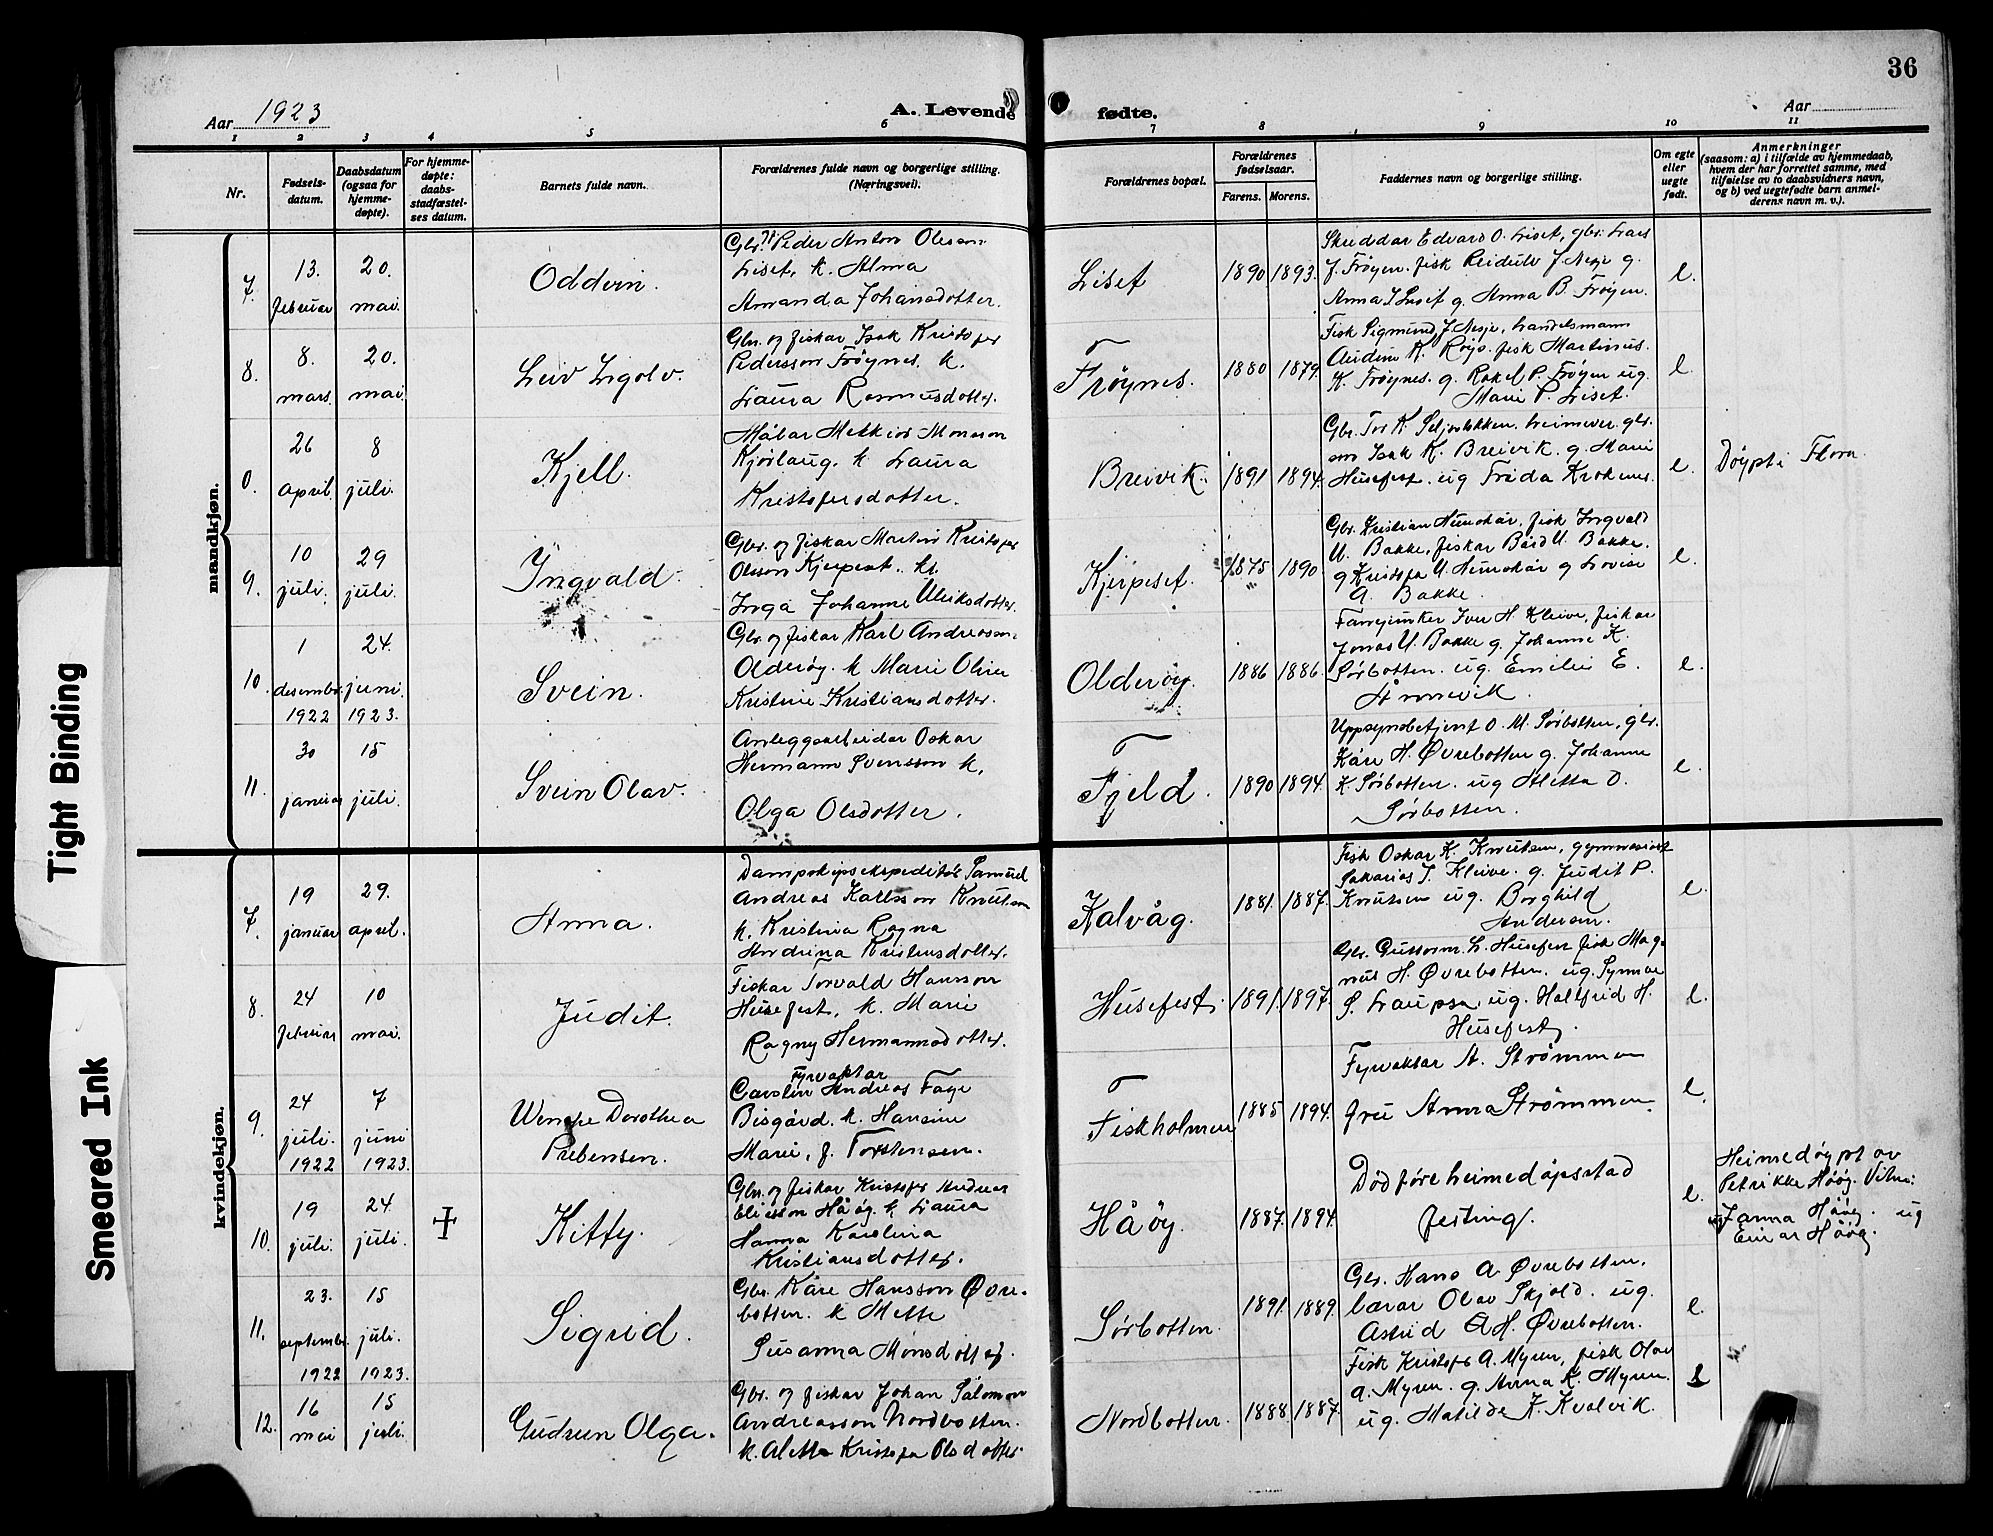 36
Aar 1923
A. Levende fødte.
Aar
1 2 3 4 5 6 7 8 9 10 11
Nr.
Fødsels-
datum.
Daabsdatum
(ogsaa for
hjemme-
døpte).
For hjemme-
døpte:
daabs-
stadfæstel-
ses datum.
Barnets fulde navn.
Forældrenes fulde navn og borgerlige stilling.
(Næringsvei).
Forældrenes bopæl.
Forældrenes
fødselsaar.
Farens. Morens.
Faddernes navn og borgerlige stilling.
Om egte
eller
uegte
født.
Anmerkninger
(saasom: a) i tilfælde av hjemmedaab,
hvem der har forrettet samme, med
tilføielse av to daabsvidners navn,
og b) ved uegtefødte barn anmel-
derens navn m. v.).
mandkjøn.
7.
13.
februar
20.
mai.
Oddvin.
Gbr. Peder Anton Olesson
Liset, k. Alma
Amanda Johansdotter.
Liset
1890 1893.
Skreddar Edvard O. Liset, gbr. Lars
J. Frøyen. fisk Reidulv J Nesje g.
Anna I Liset g. Anna B. Frøyen.
e.
8.
8.
mars.
20.
mai.
Leiv Ingolv.
Gbr. og fiskar Isak Kristofer
Pedersson Frøynes. k.
Laura Rasmusdotter.
Frøynes.
1880 1879.
Fisk Sigmund J. Nesje, handelsmann
Audun K. Røys. fisk Martinus
K. Frøynes. g. Rakel P. Frøyen ug.
Marie P. Liset.
e.
0.
26
april.
8
juli.
Kjell.
Målar Melkior Monsson
Kjørlaug. k Laura
Kristofersdotter.
Breivik.
1891 1894.
Gbr. Tor K. heimever. gbr.
son Isak K. Breivik. g. Marie
Husefest. ug Frida Krokenes.
e.
Døypt i Flora.
9.
10
juli.
29
juli.
Yngvald.
Gbr. og fiskar Martin Kristofer
Olsson Kjerpeset. k.
Inga Johanne Ulriksdotter.
Kjerpeset.
1875 1890
Gbr. Kristian Humokår, fisk Ingvald
U. Bakke, fiskar Bård U. Bakke.
g Kristofa U. Humokår g Lovise
A. Bakke.
e.
10.
1
desembr.
1922
24.
juni.
1923.
Svein.
Gbr. og fiskar Karl Andreasson
Olderøy. k Marie Oline
Kristine Kristiansdotter.
Olderøy.
1886 1886.
Fanejunker Iver H. Kleive, fiskar
Jonas U. Bakke g. Johanne K.
Sørbotten. ug. Emilie E.
Årnevik.
e.
11.
30
januar
15
juli.
Svein Olav.
Anleggsarbeidar Oskar
Hermann Svensson k.
Olga Olsdotter.
Fjeld.
1890 1894.
Uppsynsbetjent O. M. Sørbotten, gbr.
Kåre H. Øvrebotten g. Johanne
K. Sørbotten. ug Aletta O.
Sørbotten.
e.
kvindekjøn.
7.
19
januar
29.
april.
Anna.
Dampskipsekspeditør Samuel
Andreas Karlsson Knutsen
k. Kristina Ragna
Andrina Kristensdotter.
Kalvåg.
1881. 1887.
Fisk Oskar K. Knutsen, gymnasiast
Sakarias I. Kleive. g. Judit P.
Knutsen ug. Borghild
Andersen.
e.
8.
24
februar
10
mai.
Judit.
Fiskar Torvald Hansson
Husefest, k. Marie
Ragny Hermannsdotter.
Husefest.
1891. 1897.
Gbr. Guttorm L. Husefest fisk Mag-
nus H. Øvrebotten. ug. Synnøe
S. Laupsa. ug. Hallfrid H.
Husefest.
e.
9.
24
juli.
1922
7
juni
1923.
Wenche Dorothea
Prebensen.
Fyrvaktar
Carsten Andreas Faye
Bisgård. k. Hansine
Marie, f. Torstensen.
Fiskholmen
1885 1894.
Fyrvaktar A. Strømmen
fru Anna Strømmen.
e.
10.
19
juli.
24.
juli.
Kitty.
Gbr. og fiskar Kristofer Andreas
Eliasson Håøy. k Laura
Hanna Karolina
Kristiansdotter.
Håøy.
1887. 1894.
Død føre heimedøpsstad
festing.
e.
Heimedøypt av
Petrikke Håøy. Vitne:
Janna Håøy. ug
Einar Håøy.
11.
23.
septembr.
1922
15
juli.
1923.
Sigrid.
Gbr. Kåre Hansson Øvre-
botten. k Mette
Susanna Monsdotter.
Sørbotten.
1891. 1889.
Gbr. Hans A Øvrebotten.
lærar Olav Skjold. ug.
Astrid A H. Øvrebotten.
e.
12.
16
mai
15
juli.
Gudrun Olga.
Gbr. og fiskar Johan Salomon
Andreasson Nordbotten.
k. Aletta Kristofa Olsdotter.
Nordbotten.
1888. 1887.
Fisk Kristofer A. Myren, fisk Olav
A. Myren. g. Anna K. Myren.
ug. Matilde K. Kvalvik.
e
Tight Binding
Smeared Ink